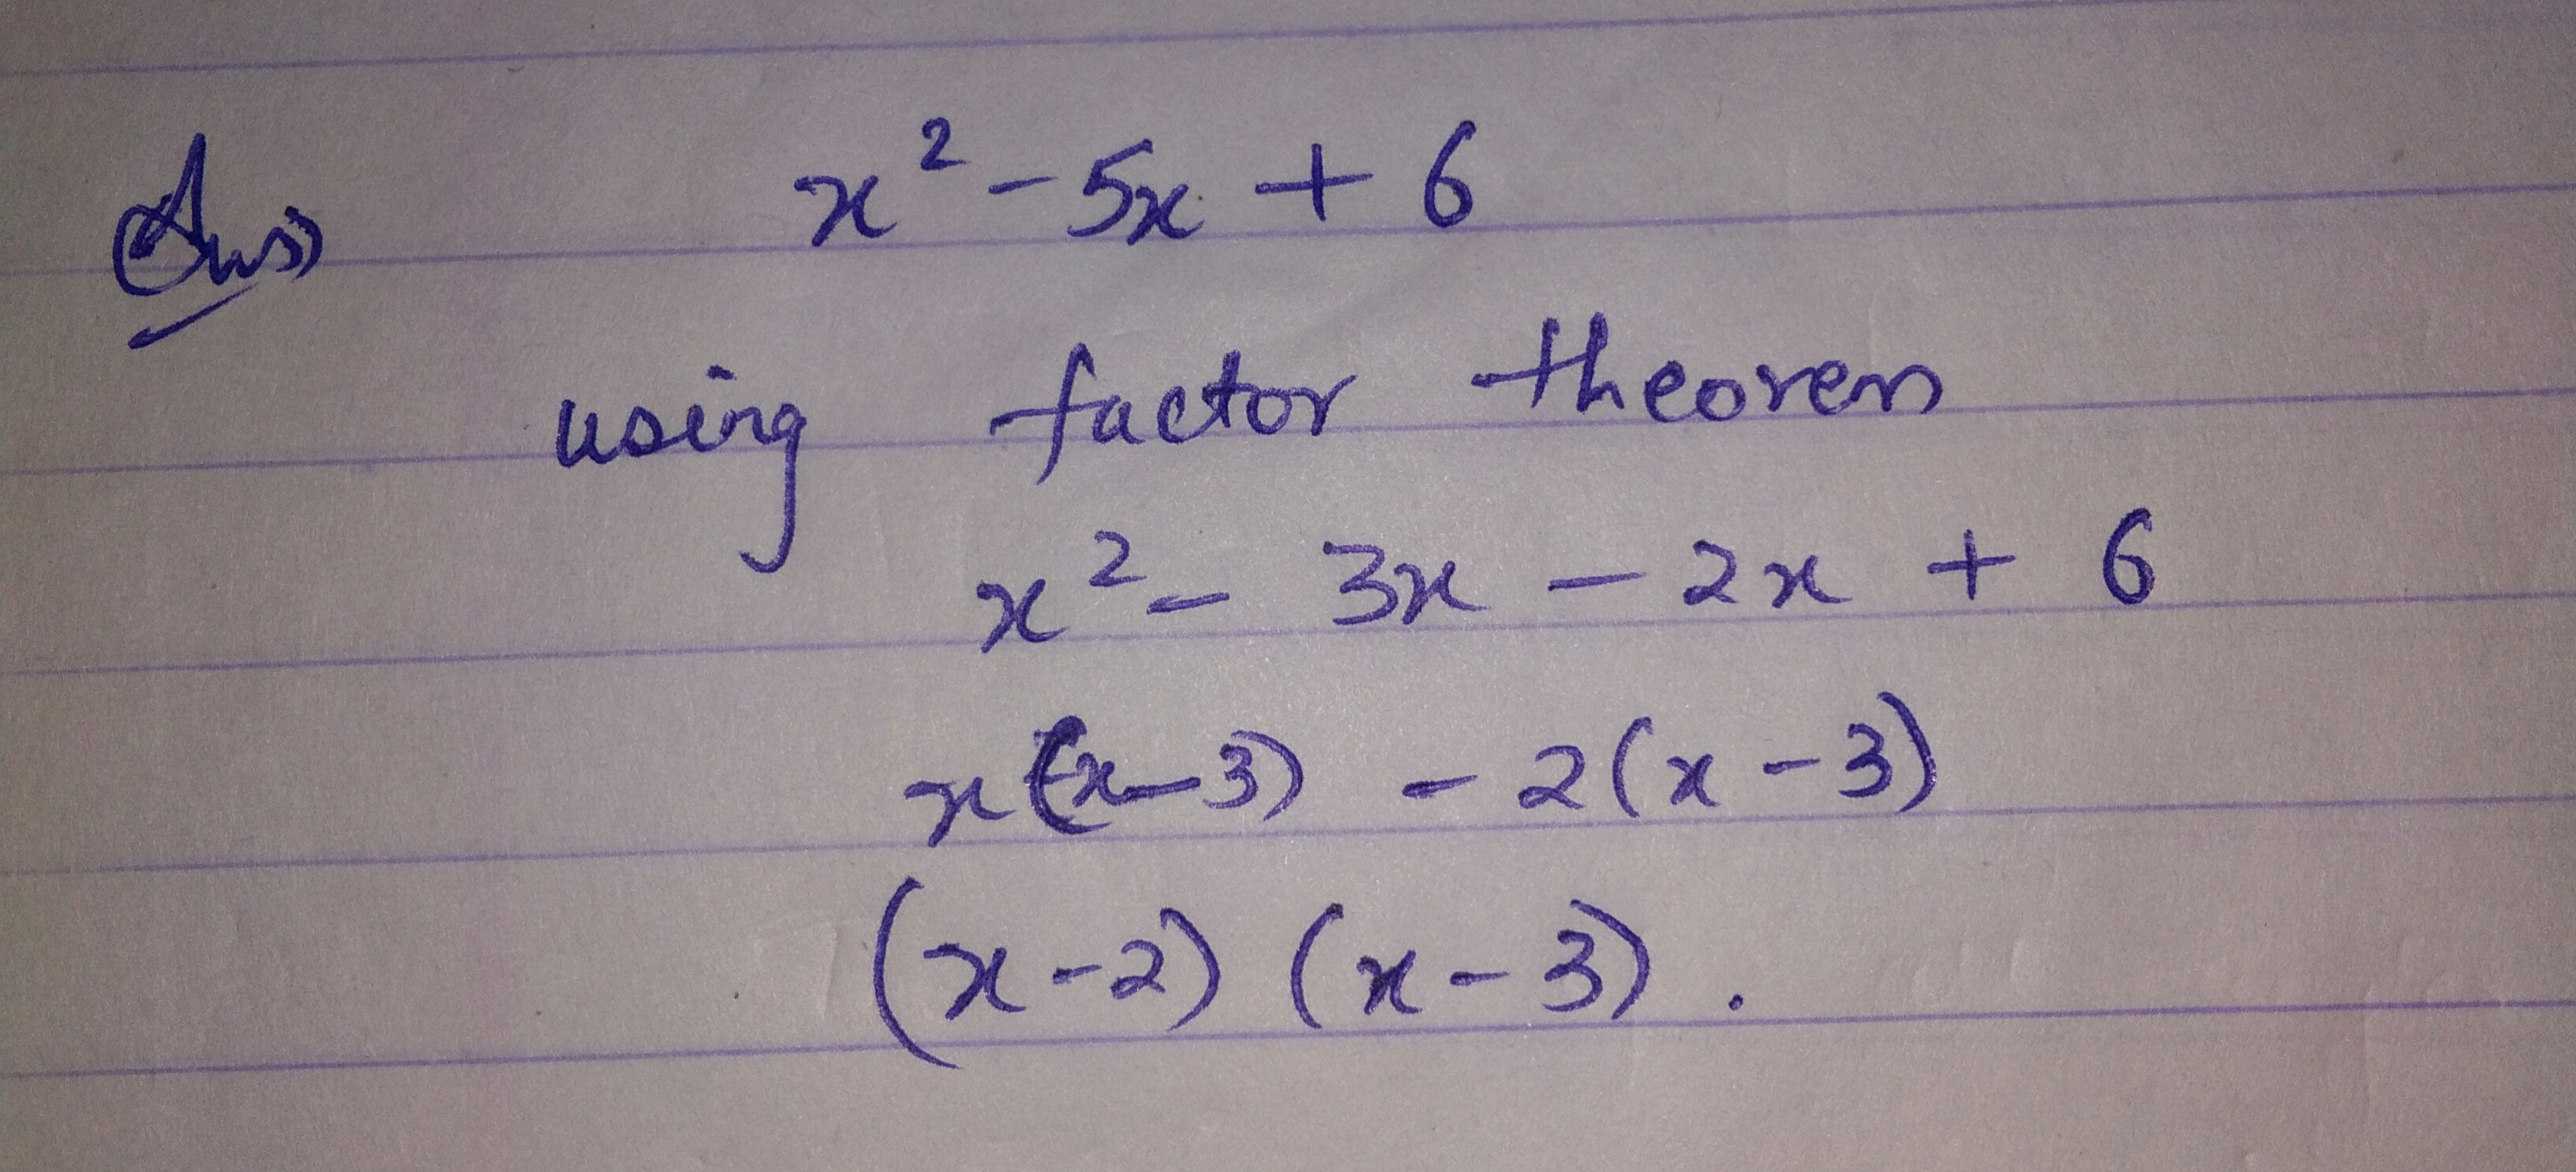 Ans x² - 5x + 6
using factor theorem
x² - 3x - 2x + 6
x(x-3) - 2(x-3)
(x-2) (x-3).